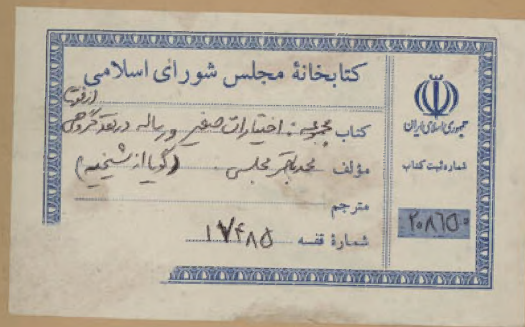 کتابخانهٔ مجلس شورای اسلامی
کتاب مجموعه: اختیارات صغیر و رساله در نقد گروهی
از فرقه
مؤلف محمد باقر مجلسی (گویا از شیخیه)
مترجم
شمارهٔ قفسه ۱۷۴۸۵
جمهوری اسلامی ایران
شماره ثبت کتاب
۲۰۸۶۵۰